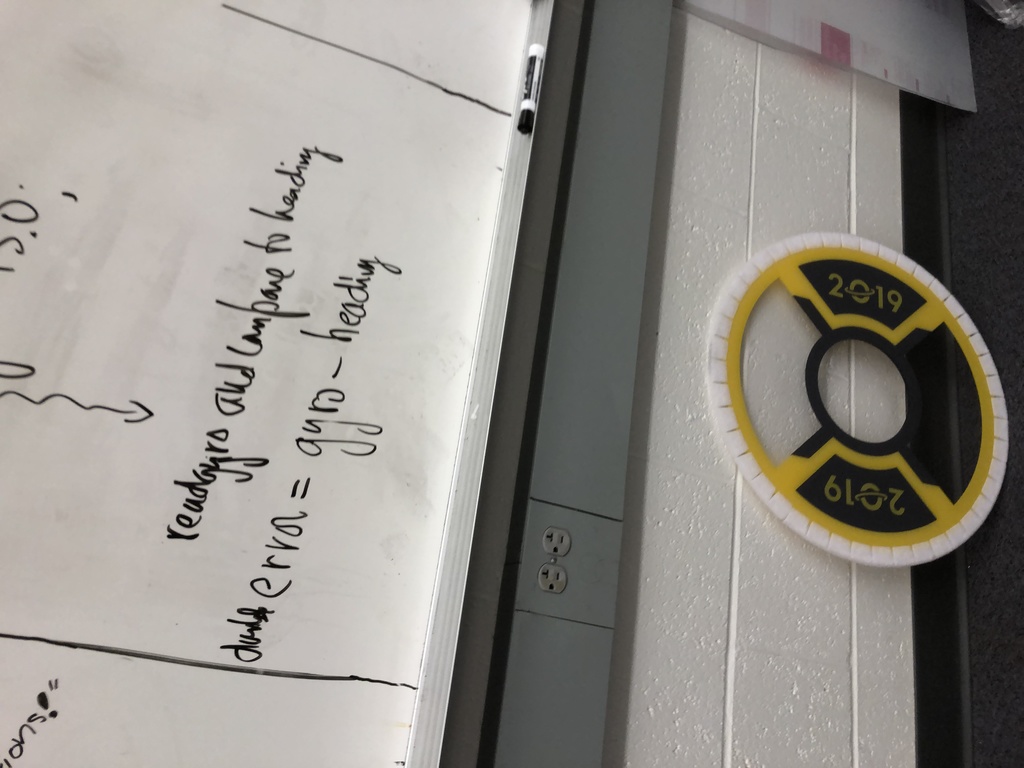 ions."
15.0;
readgyro and compare to heading
double error = gyro - heading
2019
2019